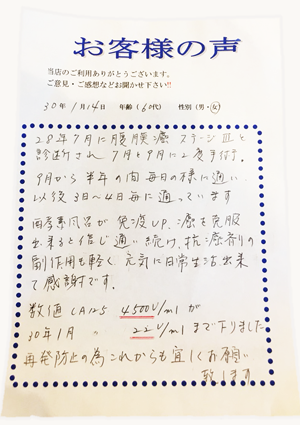 お客様の声
当店のご利用ありがとうございます。
ご意見・ご感想などお聞かせ下さい!!
30年 1月14日 年齢(60代) 性別(男・女)
28年7月に腹膜癌 ステージⅢと
診断され 7月と9月に2度手術。
9月から半年の間 毎日の様に通い
以後3日〜4日毎に通っています
酵素風呂が免疫UP、癌を克服
出来ると信じ通い続け、抗癌剤の
副作用も軽く 元気に日常生活出来
て感謝です。
数値 CA125 4500U/ml が
30年1月 の 22U/ml まで下りました
再発防止の為これからも宜しくお願い
致します